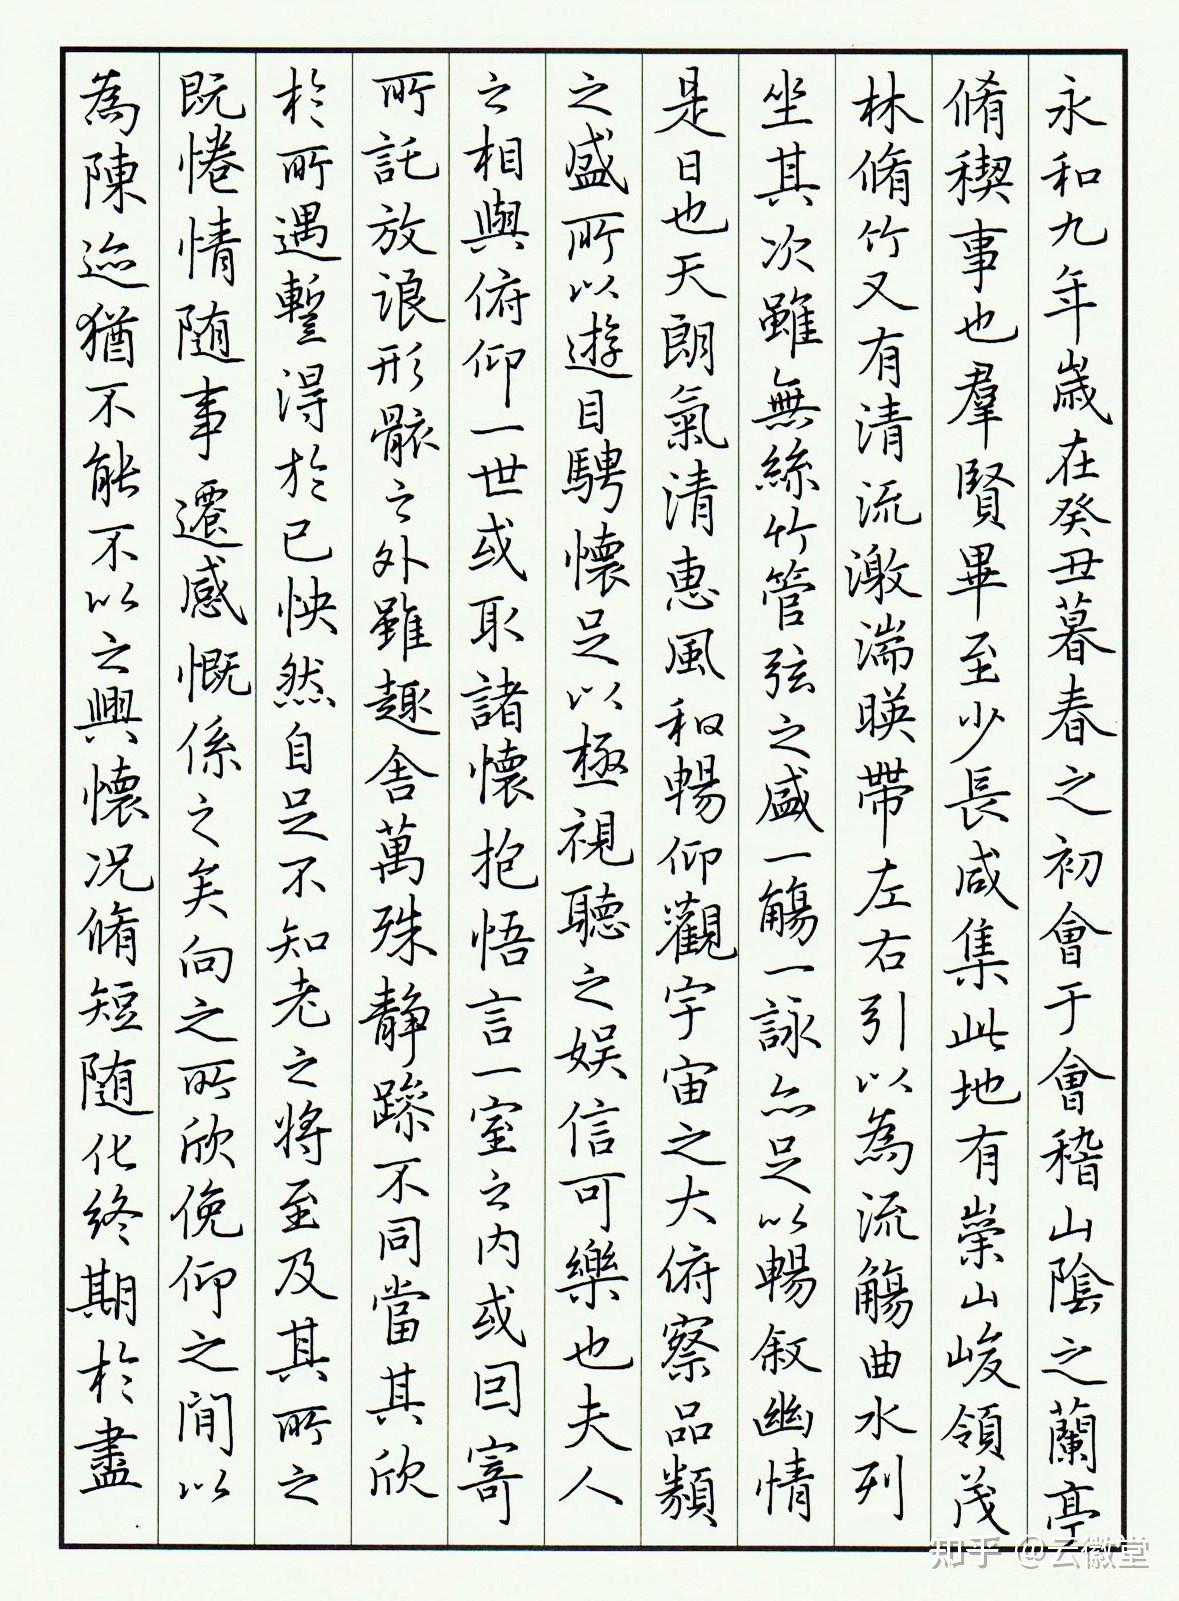 永和九年歲在癸丑暮春之初會于會稽山陰之蘭亭
脩稧事也羣賢畢至少長咸集此地有崇山峻領茂
林脩竹又有清流激湍暎帶左右引以為流觴曲水列
坐其次雖無絲竹管弦之盛一觴一詠亦足以暢叙幽情
是日也天朗氣清惠風和暢仰觀宇宙之大俯察品類
之盛所以遊目騁懷足以極視聽之娱信可樂也夫人
之相與俯仰一世或取諸懷抱悟言一室之内或因寄
所託放浪形骸之外雖趣舍萬殊静躁不同當其欣
於所遇暫得於己快然自足不知老之將至及其所之
既惓情随事遷感慨係之矣向之所欣俛仰之間以
為陳迹猶不能不以之興懷况脩短随化終期於盡
知乎 @云徽堂